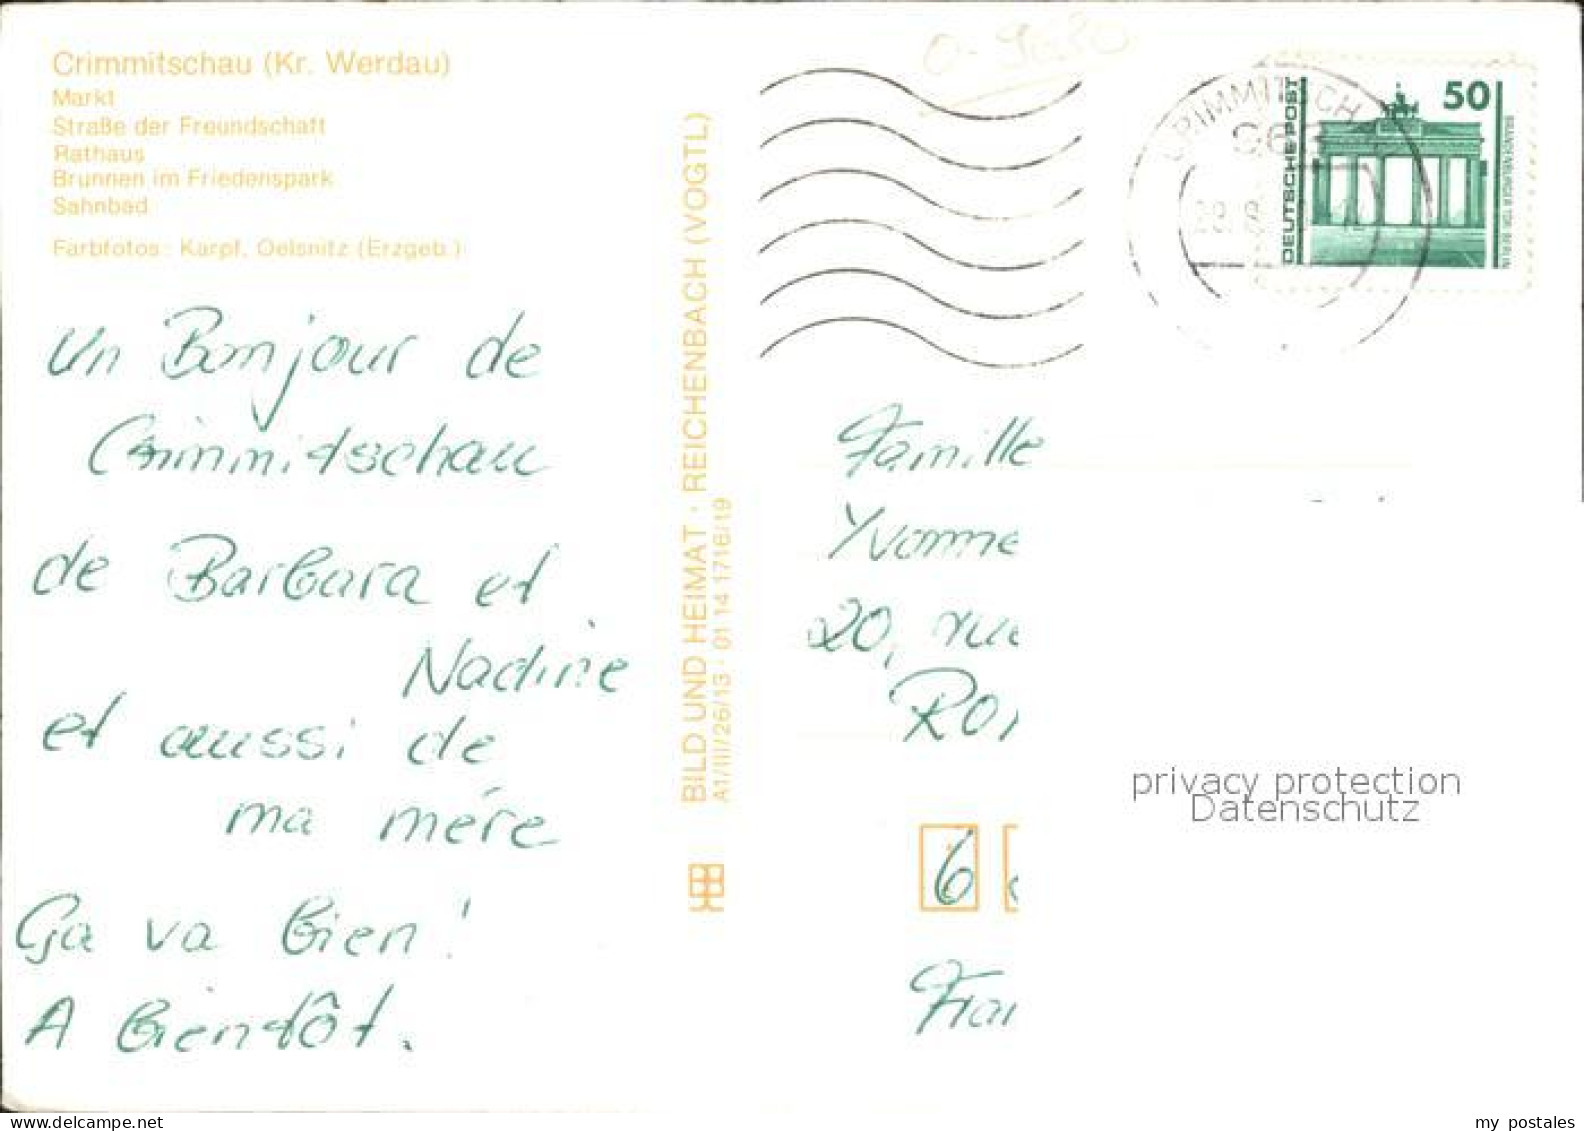 Crimmitschau (Kr. Werdau)
Markt
Straße der Freundschaft
Rathaus
Brunnen im Friedenspark
Sahnbad
Farbfotos: Karpf, Oelsnitz (Erzgeb.)
Un Bonjour de
Crimmitschau
de Barbara et
Nadine
et aussi de
ma mére
Ça va bien!
A bientôt.
BILD UND HEIMAT · REICHENBACH (VOGTL)
A1/III/26/13 · 01 14 1716/19
CRIMMITSCH
DEUTSCHE POST
50
BRANDENBURGER TOR BERLIN
Famille
Yvonne
20, rue
6
privacy protection
Datenschutz
my postales